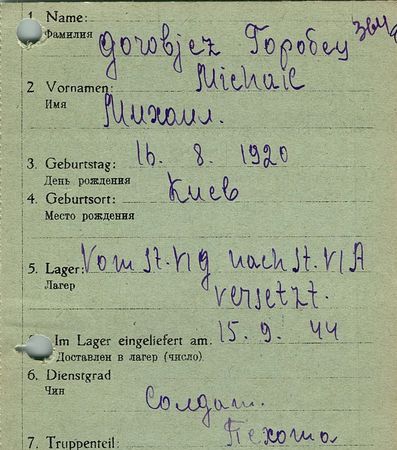 1. Name:
Фамилия
Gorobjez Горобец
2 Vornamen: Michail
Имя
Михаил.
3. Geburtstag: 16. 8. 1920
День рождения
4. Geburtsort: Киев
Место рождения
5. Lager: Vom St. VI G nach St. VI A
Лагер
versetzt.
Im Lager eingeliefert am: 15. 9. 44
Доставлен в лагер (число).
6. Dienstgrad
Чин
Солдат.
7. Truppenteil: Пехота